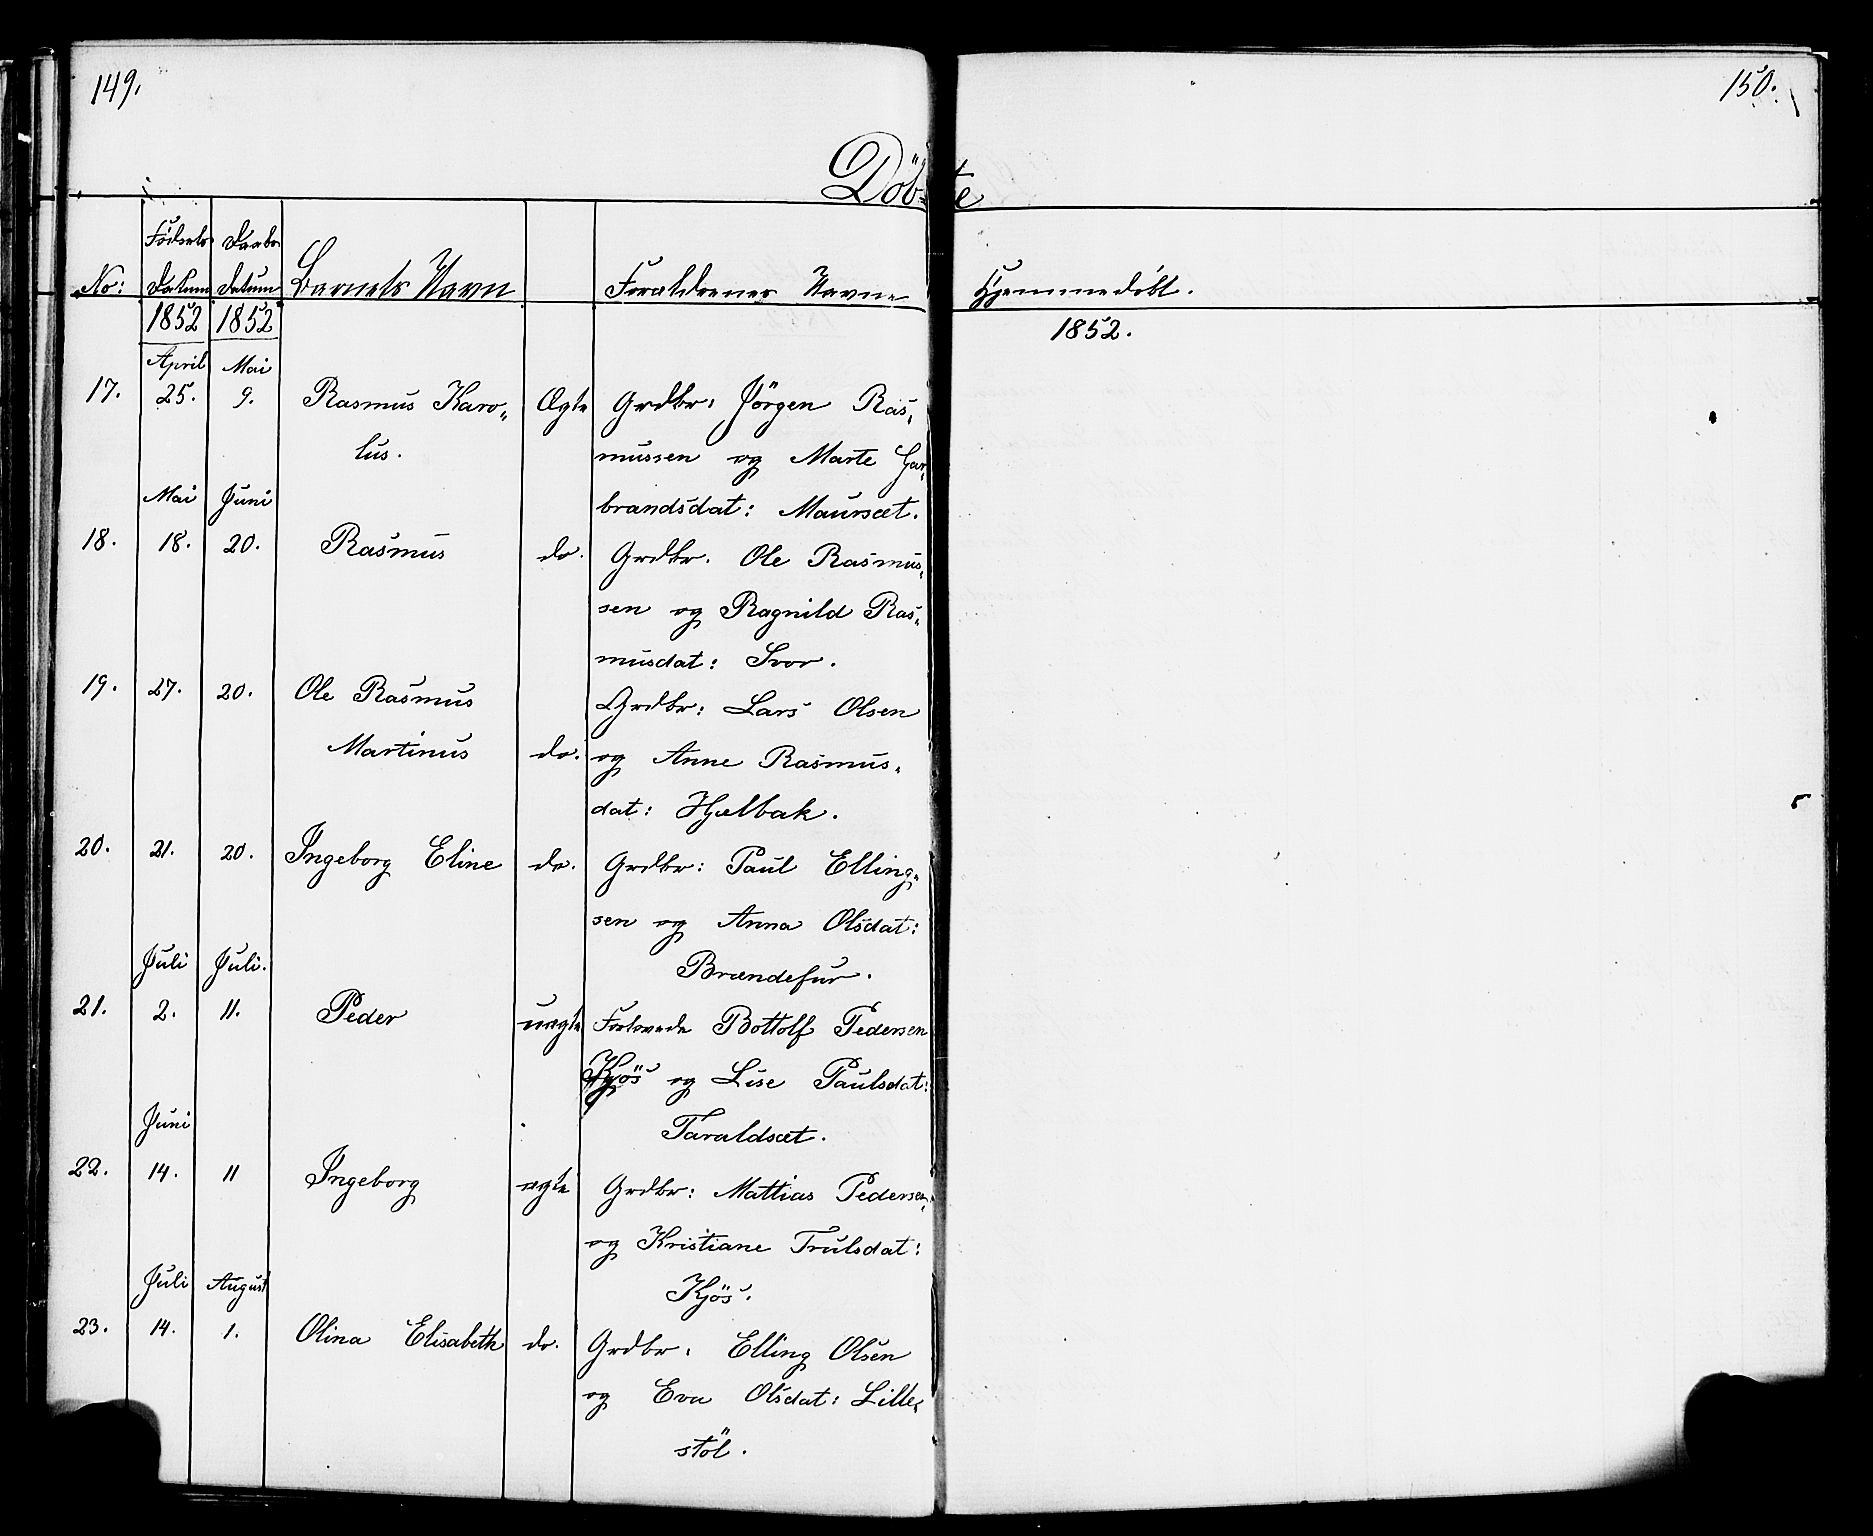 149.
150.
Döb-te
No:
Födsels Datum
Daabs Datum
Barnets Navn
Foraldrenes Navne
Hjemmedöbt.
1852
1852
1852.
April
Mai
17.
25.
9.
Rasmus Karo„
Ægte
Grdbr: Jörgen Ras„
lus.
mussen og Marte Gar„
Mai
Juni
brandsdat: Maursæt.
18.
18.
20.
Rasmus
do.
Grdbr. Ole Rasmus„
sen og Ragnild Ras„
musdat: Svor.
19.
27.
20.
Ole Rasmus
Grdbr: Lars Olsen
Martinus
do.
og Anne Rasmus„
dat: Hjelbak.
20.
21.
20.
Ingeborg Eline
do.
Grdbr: Paul Elling„
sen og Anna Olsdat:
Juli
Juli.
Brændefur.
21.
2.
11.
Peder
uægte
Forlovede Bottolf Pedersen
Kjös og Lise Paulsdat:
Juni
Taraldsæt.
22.
14.
11
Ingeborg
ægte
Grdbr: Mattias Pedersen
og Kristiane Trulsdat:
Juli
August
Kjös.
23.
14.
1.
Olina Elisabeth
do.
Grdbr: Elling Olsen
og Eva Olsdat: Lille„
stöl.